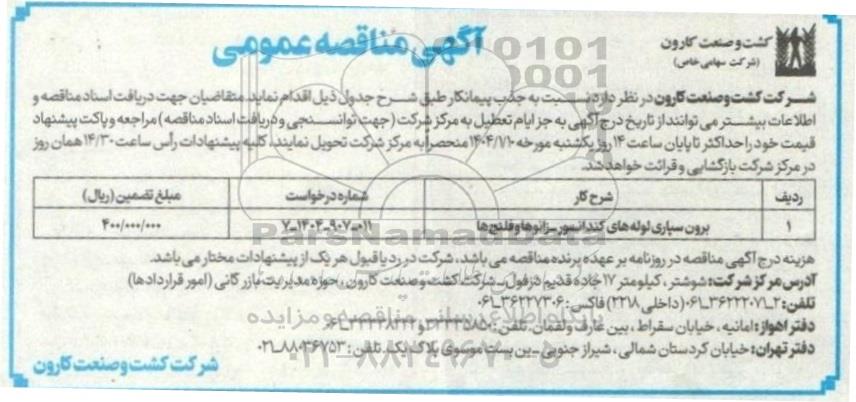 کشت و صنعت کارون
(شرکت سهامی خاص)
آگهی مناقصه عمومی
شرکت کشت و صنعت کارون در نظر دارد نسبت به جذب پیمانکار طبق شرح جدول ذیل اقدام نماید. متقاضیان جهت دریافت اسناد مناقصه و
اطلاعات بیشتر می توانند از تاریخ درج آگهی به جز ایام تعطیل به مرکز شرکت (جهت توانسنجی و دریافت اسناد مناقصه) مراجعه و پاکت پیشنهاد
قیمت خود را حداکثر تا پایان ساعت ۱۴ روز یکشنبه مورخه ۱۴۰۴/۷/۱۰ منحصراً به مرکز شرکت تحویل نمایند. کلیه پیشنهادات رأس ساعت ۱۴/۳۰ همان روز
در مرکز شرکت بازگشایی و قرائت خواهد شد.
ردیف شرح کار شماره درخواست مبلغ تضمین (ریال)
۱ برون سپاری لوله های کندانسور_زانوها و فلنج ها ۷_۱۴۰۴_۹۰۷_۰۱۱ ۴۰۰/۰۰۰/۰۰۰
هزینه درج آگهی مناقصه در روزنامه بر عهده برنده مناقصه می باشد، شرکت در رد یا قبول هر یک از پیشنهادات مختار می باشد.
آدرس مرکز شرکت: شوشتر، کیلومتر ۱۷ جاده قدیم دزفول_شرکت کشت و صنعت کارون، حوزه مدیریت بازرگانی (امور قراردادها)
تلفن: ۲_۳۶۲۲۲۰۷۱_۰۶۱ (داخلی ۲۲۱۸) فاکس: ۳۶۲۲۷۳۰۶_۰۶۱
دفتر اهواز: امانیه، خیابان سقراط، بین عارف و لقمان. تلفن:
دفتر تهران: خیابان کردستان شمالی، شیراز جنوبی_بن بست موسوی پلاک یک. تلفن: ۸۸۰۳۶۷۵۳_۰۲۱
شرکت کشت و صنعت کارون
ParsNamadData
پایگاه اطلاع رسانی مناقصه و مزایده